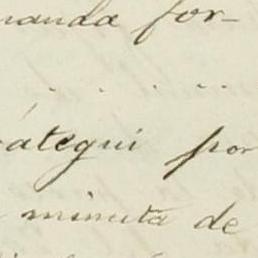 manda for-
. . . .
ategui por
minuta de